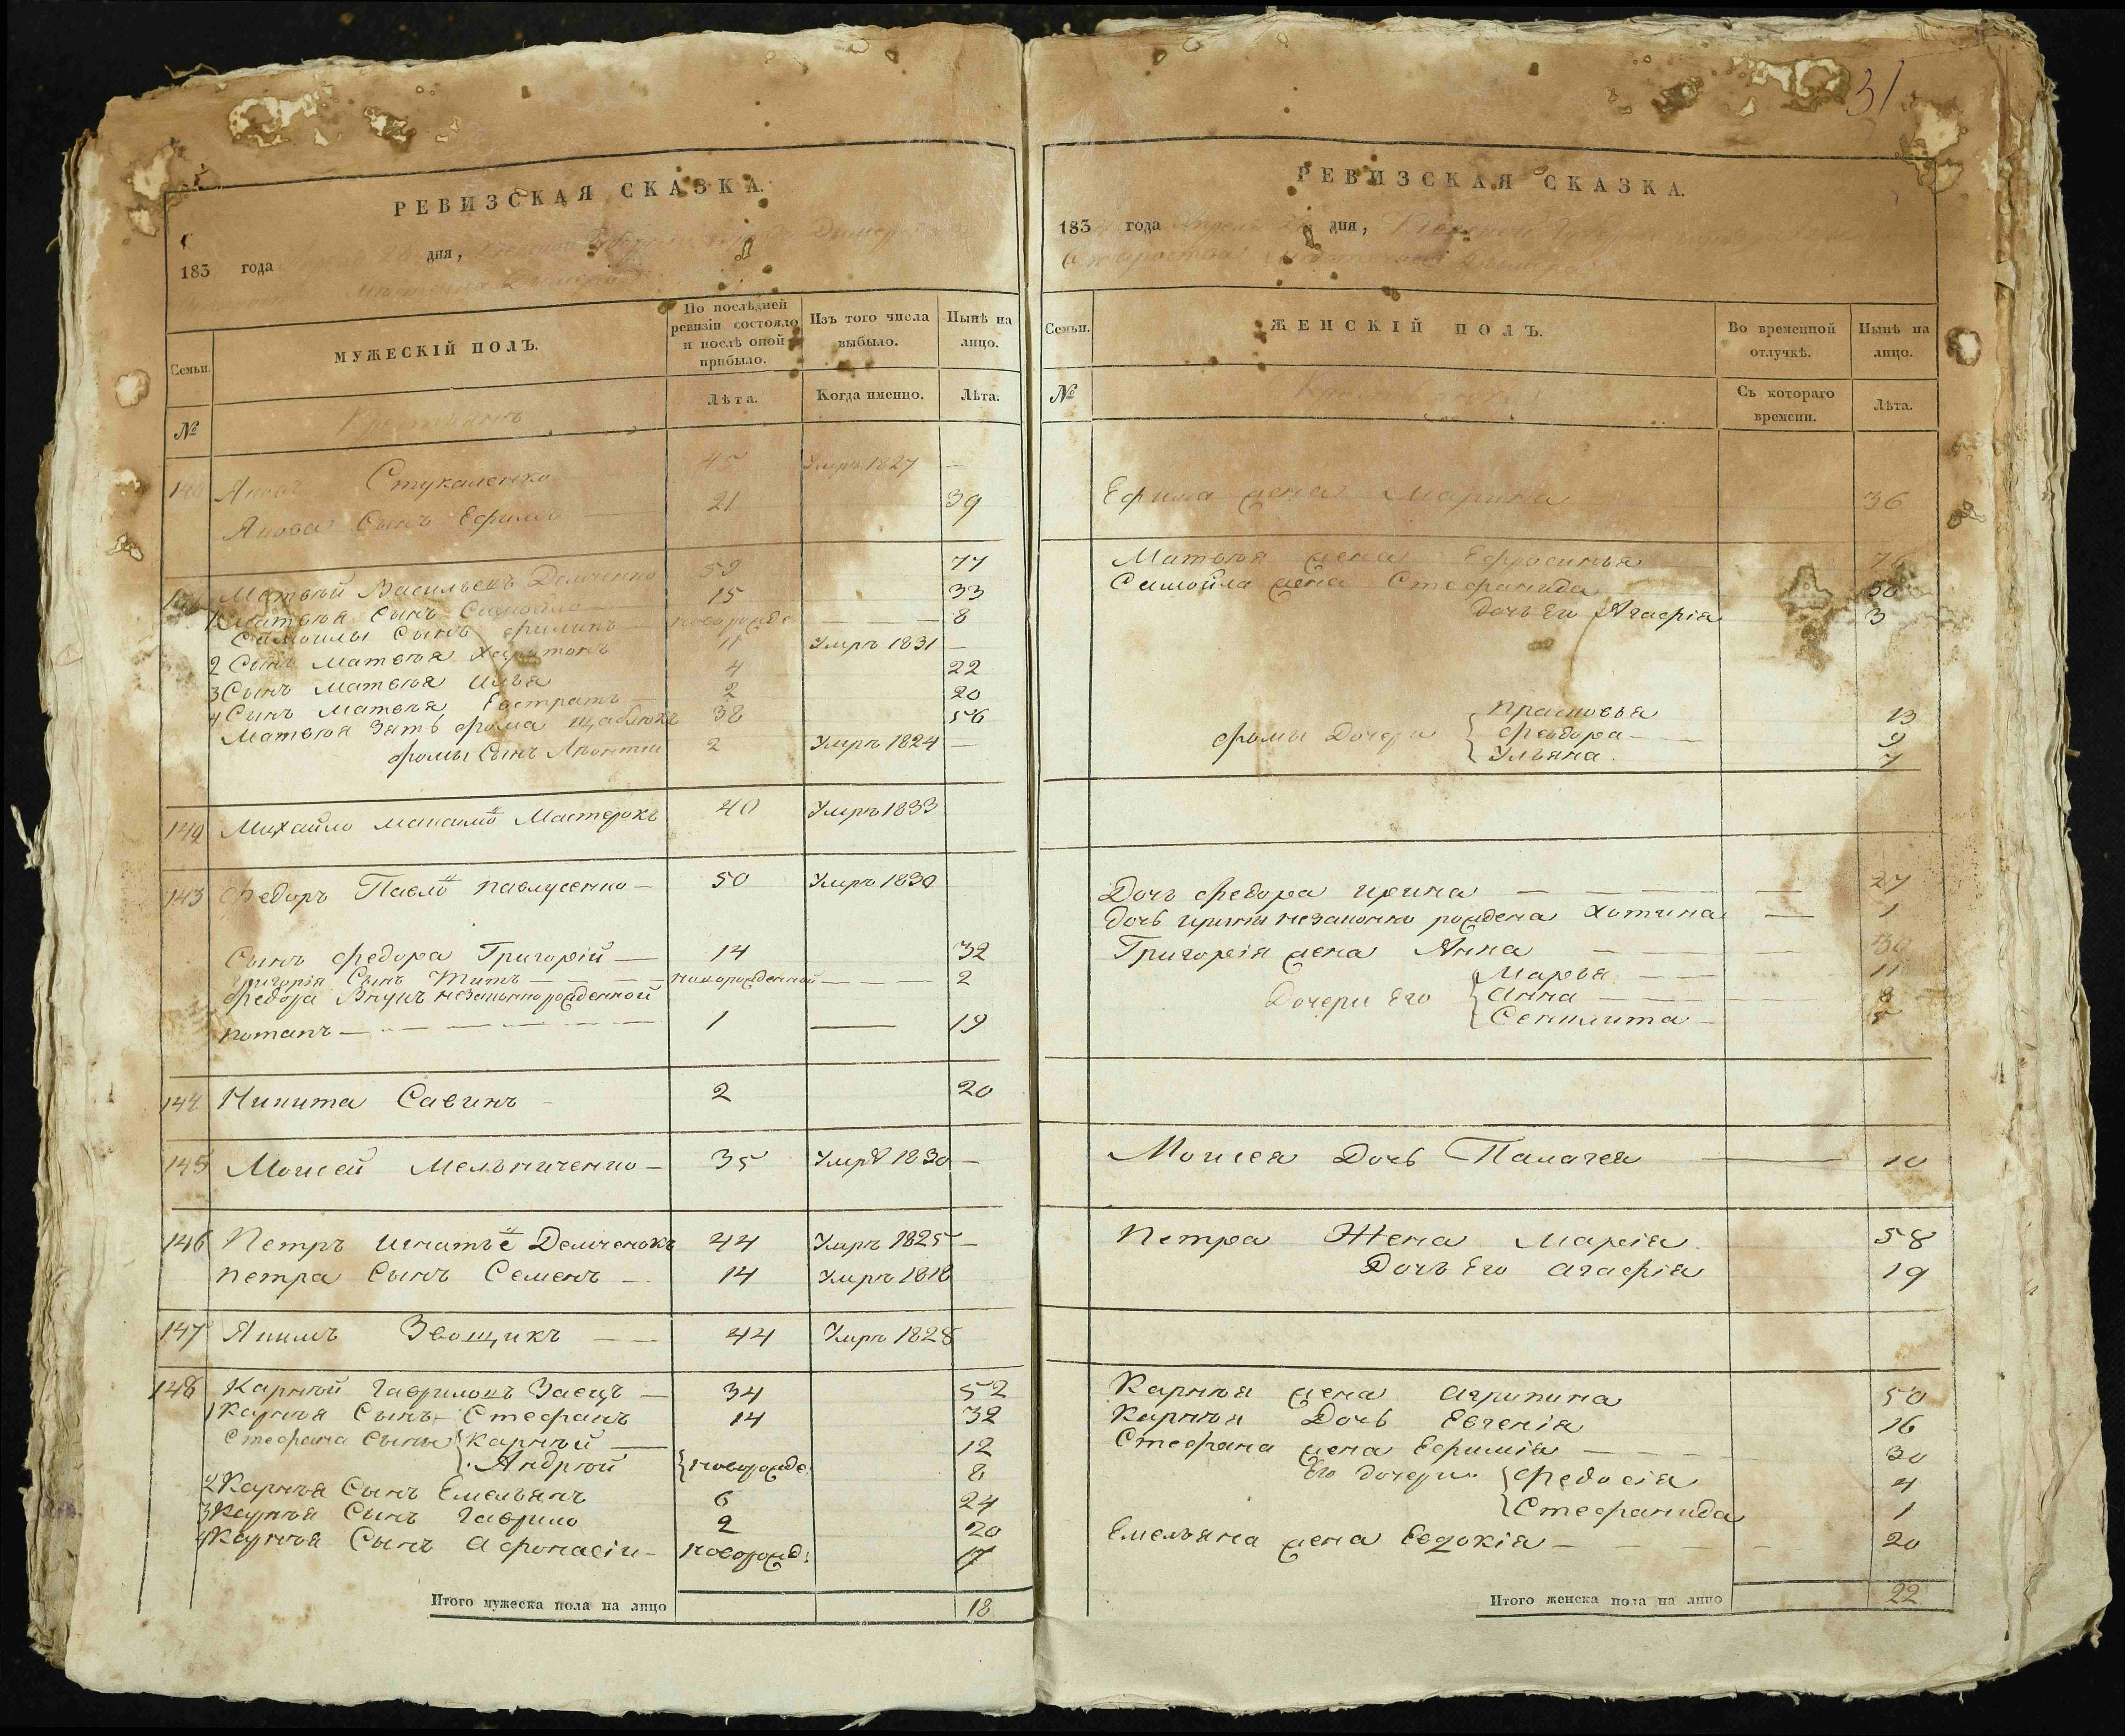 РЕВИЗСКАЯ СКАЗКА.
183 года дня,
Семьи.
МУЖЕСКІЙ ПОЛЪ.
По послѣдней ревизіи состояло и послѣ оной прибыло.
Изъ того числа выбыло.
Нынѣ на лицо.
№
Лѣта.
Когда именно.
Лѣта.
Стукаленко 45 Умръ 1827 —
Сынъ Ефимъ 21 39
Матвѣй Васильевъ Демченко 59 77
1 Матвѣя Сынъ Самойло 15 33
Самойлы Сынъ Филипъ — новорожде — — 8
2 Сынъ Матвѣя Харитонъ 11 Умръ 1831 —
3 Сынъ Матвѣя Илья 4 22
4 Сынъ Матвѣя Евстратъ — 2 20
Матвѣя Зять Фома 38 56
Фомы Сынъ 2 Умръ 1824 —
142 Михайло Мастерокъ 40 Умръ 1833
143 Федоръ Павлусенко — 50 Умръ 1830
Сынъ Федора Григорій — 14 32
Григорія Сынъ Титъ — — новорожденной — — 2
Федора Внукъ незаконнорожденной
Потапъ — — — 1 — 19
144 Никита Савинъ 2 20
145 Моисей Мельниченко — 35 Умръ 1830 —
146 Петръ Демченокъ 44 Умръ 1825 —
Петра Сынъ Семенъ — 14 Умръ 1818
147 Якимъ Звощикъ — 44 Умръ 1828
148 Карнѣй Гавриловъ Заецъ — 34 52
1 Карнѣя Сынъ Стефанъ 14 32
Стефана Сыны { Карнѣй — 12
Андрѣй { новорожде: 8
2 Карнѣя Сынъ Емельянъ 6 24
3 Карнѣя Сынъ Гаврило 2 20
4 Карнѣя Сынъ Афонасіи — новорожд: 17
Итого мужеска пола на лицо 18
31
РЕВИЗСКАЯ СКАЗКА.
183 года дня,
Семьи.
ЖЕНСКІЙ ПОЛЪ.
Во временной отлучкѣ.
Нынѣ на лицо.
№
Съ котораго времени.
Лѣта.
Ефима жена Марина 36
Матвѣя жена Ефросинья 76
Самойла жена Стефанида 30
Дочь Его Агафія 3
Прасковья 13
Фомы Дочери { Феодора — 9
Ульяна 7
Дочь Федора Ирина — — — 27
Дочь Ирины незаконно рождена — 1
Григорія жена Анна — — — 30
Марья — — 11
Дочери Его { Анна — — 8
Моисея Дочь Палагея — 10
Петра Жена Марія 58
Дочь Его Агафія 19
Карнѣя жена Агрипина 50
Карнѣя Дочь Евгенія 16
Стефана жена Ефимія — — 30
Его дочери { Федосія 4
Стефанида 1
Емельяна жена Евдокія — — — 20
Итого женска пола на лицо 22